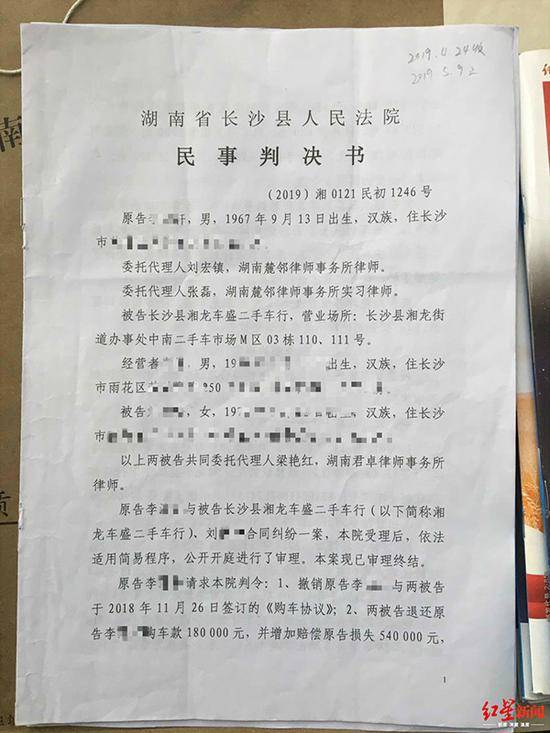 2019.4.24收
2019.5.9
湖南省长沙县人民法院
民事判决书
(2019)湘0121民初1246号
原告李 轩,男,1967年9月13日出生,汉族,住长沙
市 。
委托代理人刘宏镇,湖南麓邻律师事务所律师。
委托代理人张磊,湖南麓邻律师事务所实习律师。
被告长沙县湘龙车盛二手车行,营业场所:长沙县湘龙街
道办事处中南二手车市场M区03栋110、111号。
经营者 ,男,19 出生,汉族,住长沙
市雨花区 250 。
被告 ,女,197 ,汉族,住长沙
市 。
以上两被告共同委托代理人梁艳红,湖南君卓律师事务所
律师。
原告李 与被告长沙县湘龙车盛二手车行(以下简称湘
龙车盛二手车行)、刘 合同纠纷一案,本院受理后,依法
适用简易程序,公开开庭进行了审理。本案现已审理终结。
原告李 请求本院判令:1、撤销原告李 与两被告
于2018年11月26日签订的《购车协议》;2、两被告退还原
告李 购车款180000元,并增加赔偿原告损失540000元,
1
红星新闻
南
质